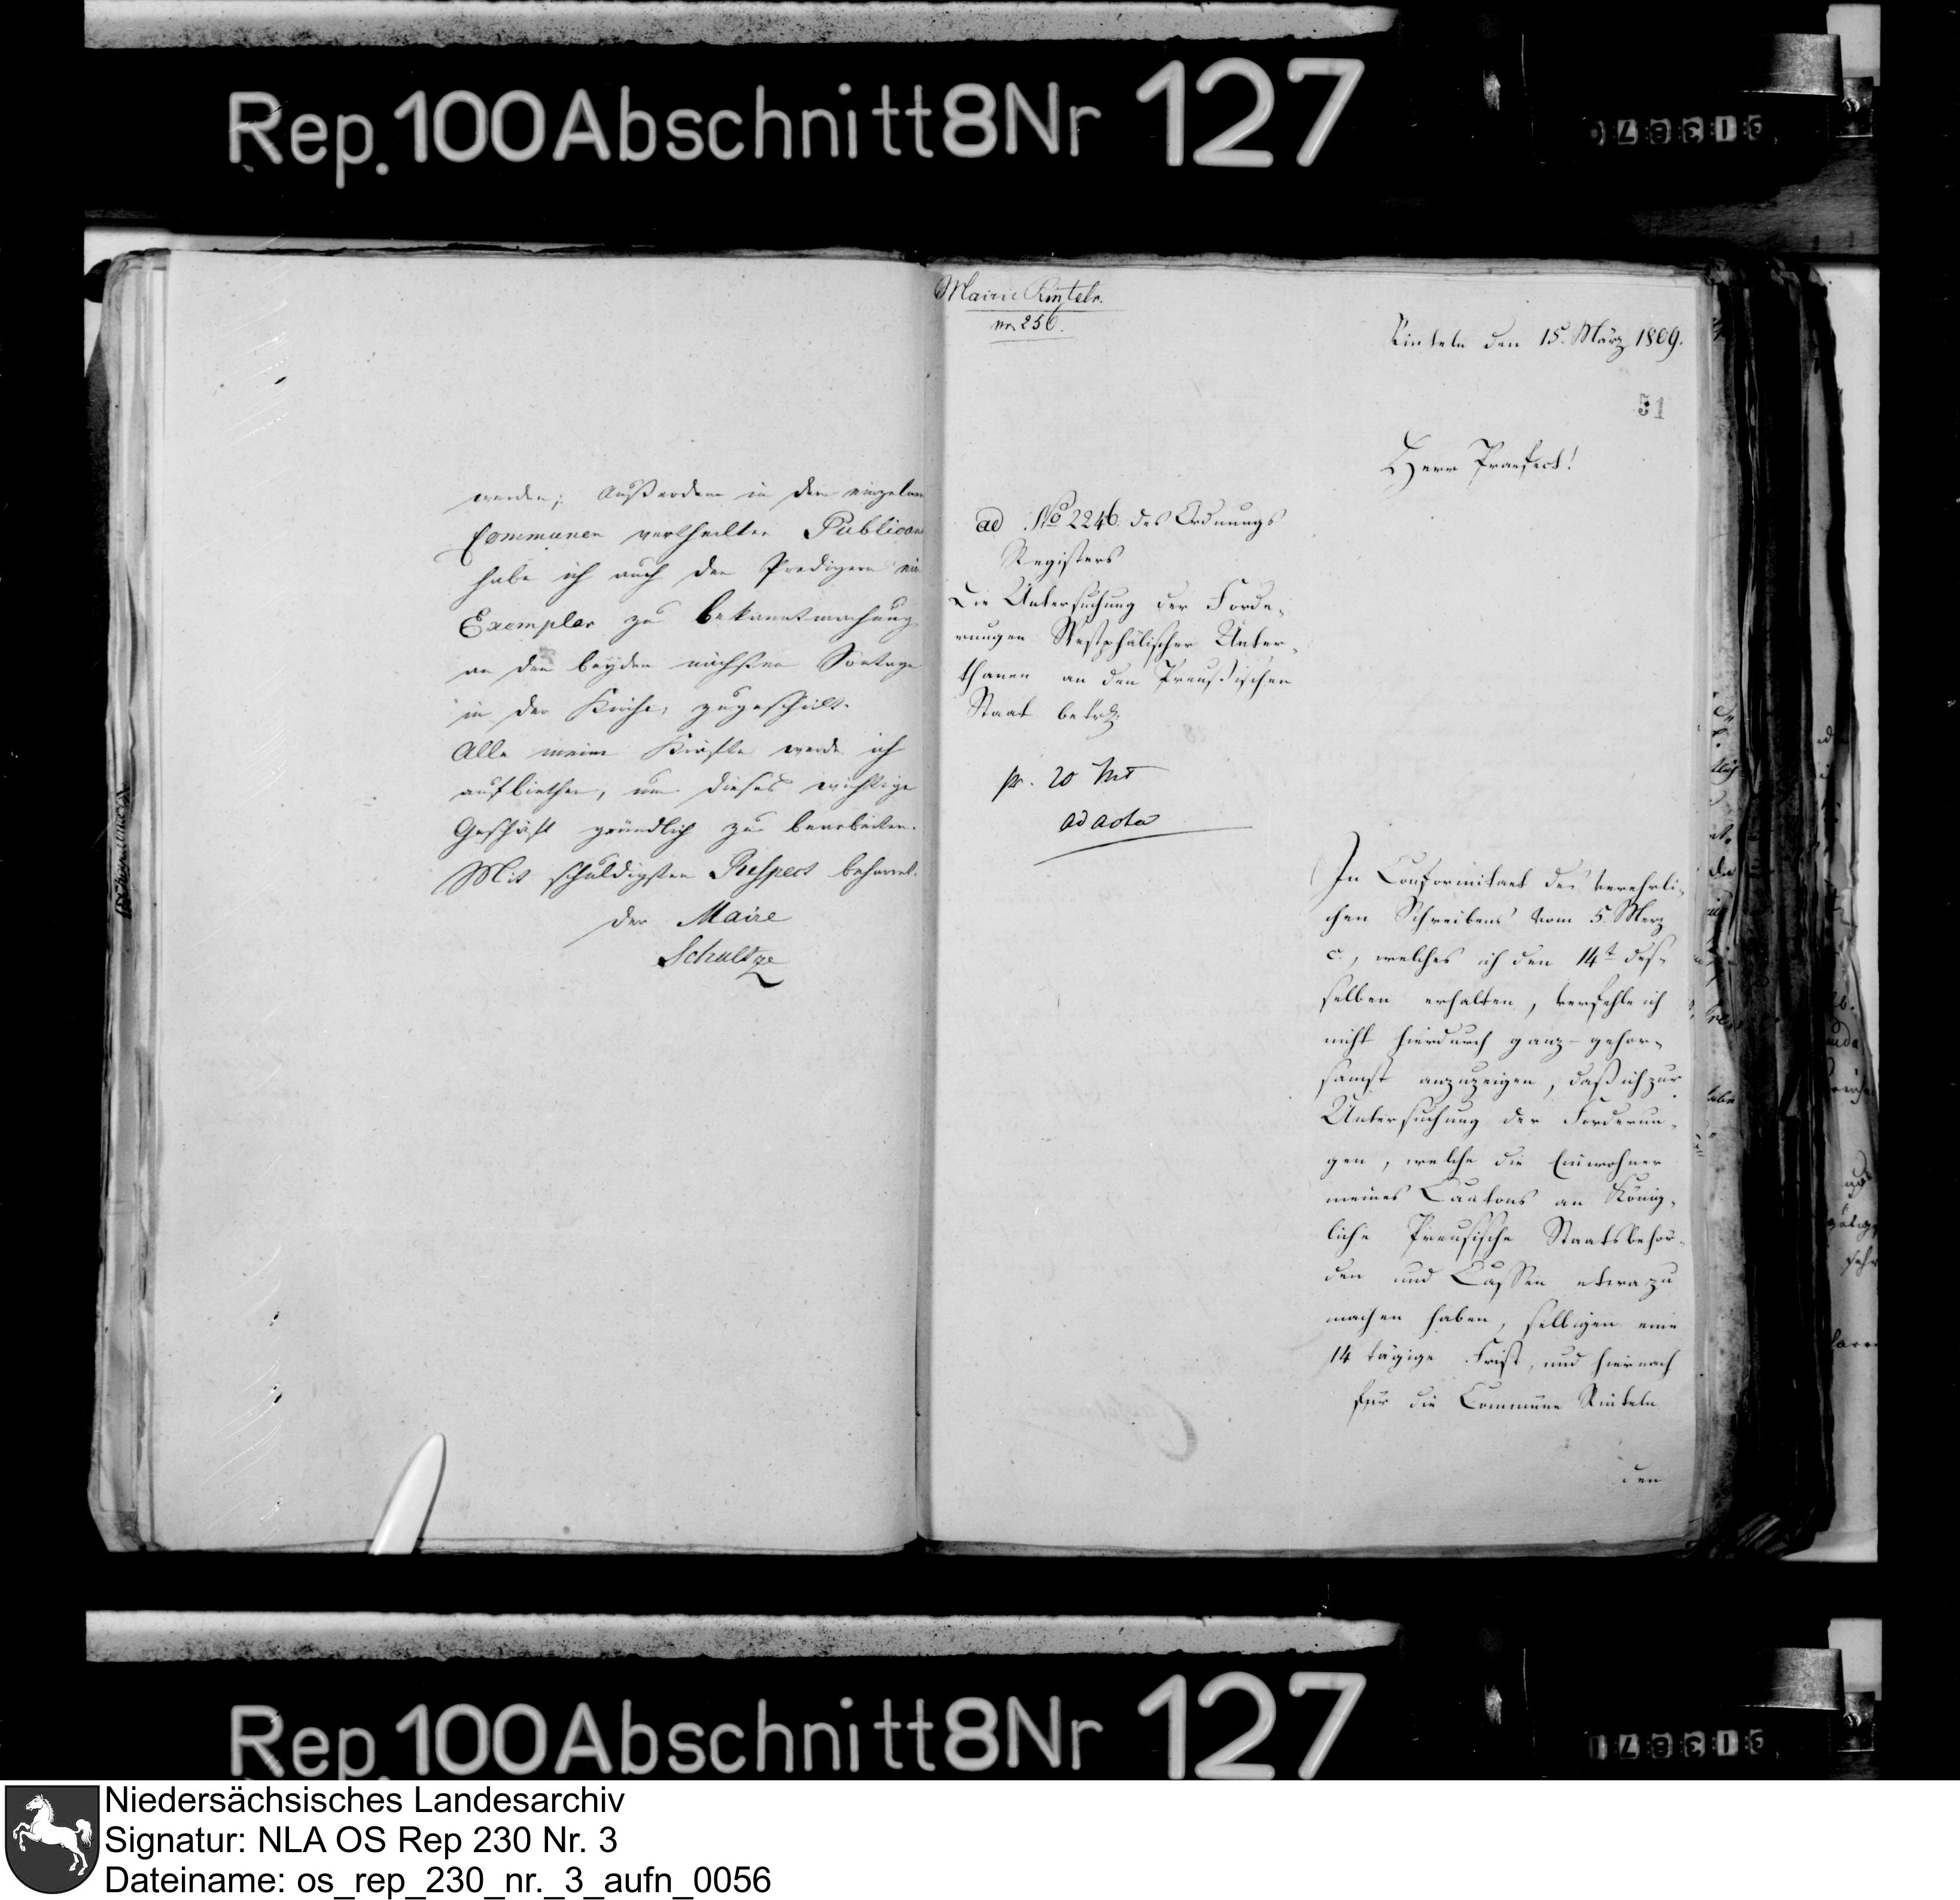 Rep. 100 Abschnitt 8 Nr 127
werden; Außerdem in den einzelnen
Communen vertheilten Publicand
habe ich auch den Predigern ein
Exemplar zu bekanntmachung
an den beyden nächsten Sontage
in der Kirche, zugeschickt.
Alle meine Kräfte werde ich
aufbiethen, um dieses wichtige
Geschäft gründlich zu bearbeiten.
Mit schuldigsten Respect beharret.
der Maire
Schultze
Mairie Rinteln.
nr. 256.
Rinteln den 15. März 1809.
51
Herr Praefect!
ad No 2246. des Ordnungs
Registers
Die Untersuchung der Forde-
rungen Westphälischer Unter-
thanen an den Preußischen
Staat betr.
pr. 20 Mrt
ad acta
In Conformitaet des verehrli-
chen Schreibens vom 5. Merz
c., welches ich den 14t des-
selben erhalten, verfehle ich
nicht hierdurch ganz-gehor-
samst anzuzeigen, daß ich zur
Untersuchung der Forderun-
gen, welche die Einwohner
meines Cantons an König-
liche Preusische Staatsbehör-
den und Cassen etwa zu
machen haben, selbigen eine
14 tägige Frist, und hiernach
für die Commune Rinteln
den
Rep. 100 Abschnitt 8 Nr 127
Niedersächsisches Landesarchiv
Signatur: NLA OS Rep 230 Nr. 3
Dateiname: os_rep_230_nr._3_aufn_0056